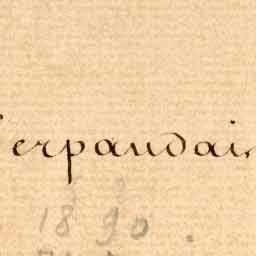 erpaudais
1890.